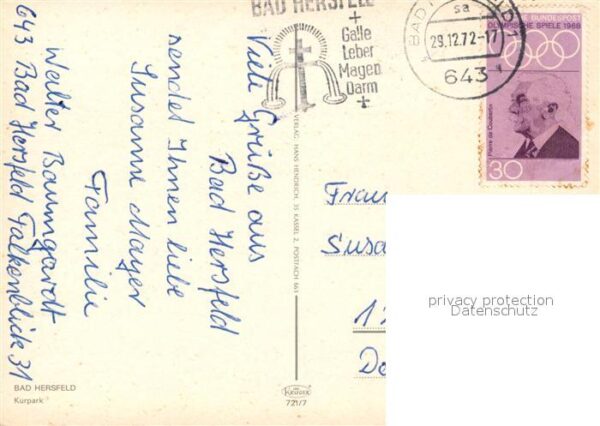 BAD HERSFELD
Galle
Leber
Magen
Darm
BAD
sa
29.12.72-17
643
DEUTSCHE BUNDESPOST
OLYMPISCHE SPIELE 1968
Pierre de Coubertin
30
Viele Grüße aus
Bad Hersfeld
sendet Ihnen liebe
Susanne Mayer
Familie
Walter Baumgardt
643 Bad Hersfeld Falkenblick 31
VERLAG HANS HENDRICH, 35 KASSEL 2, POSTFACH 661
Frau
Susa
1
De
privacy protection
Datenschutz
BAD HERSFELD
Kurpark
721/7